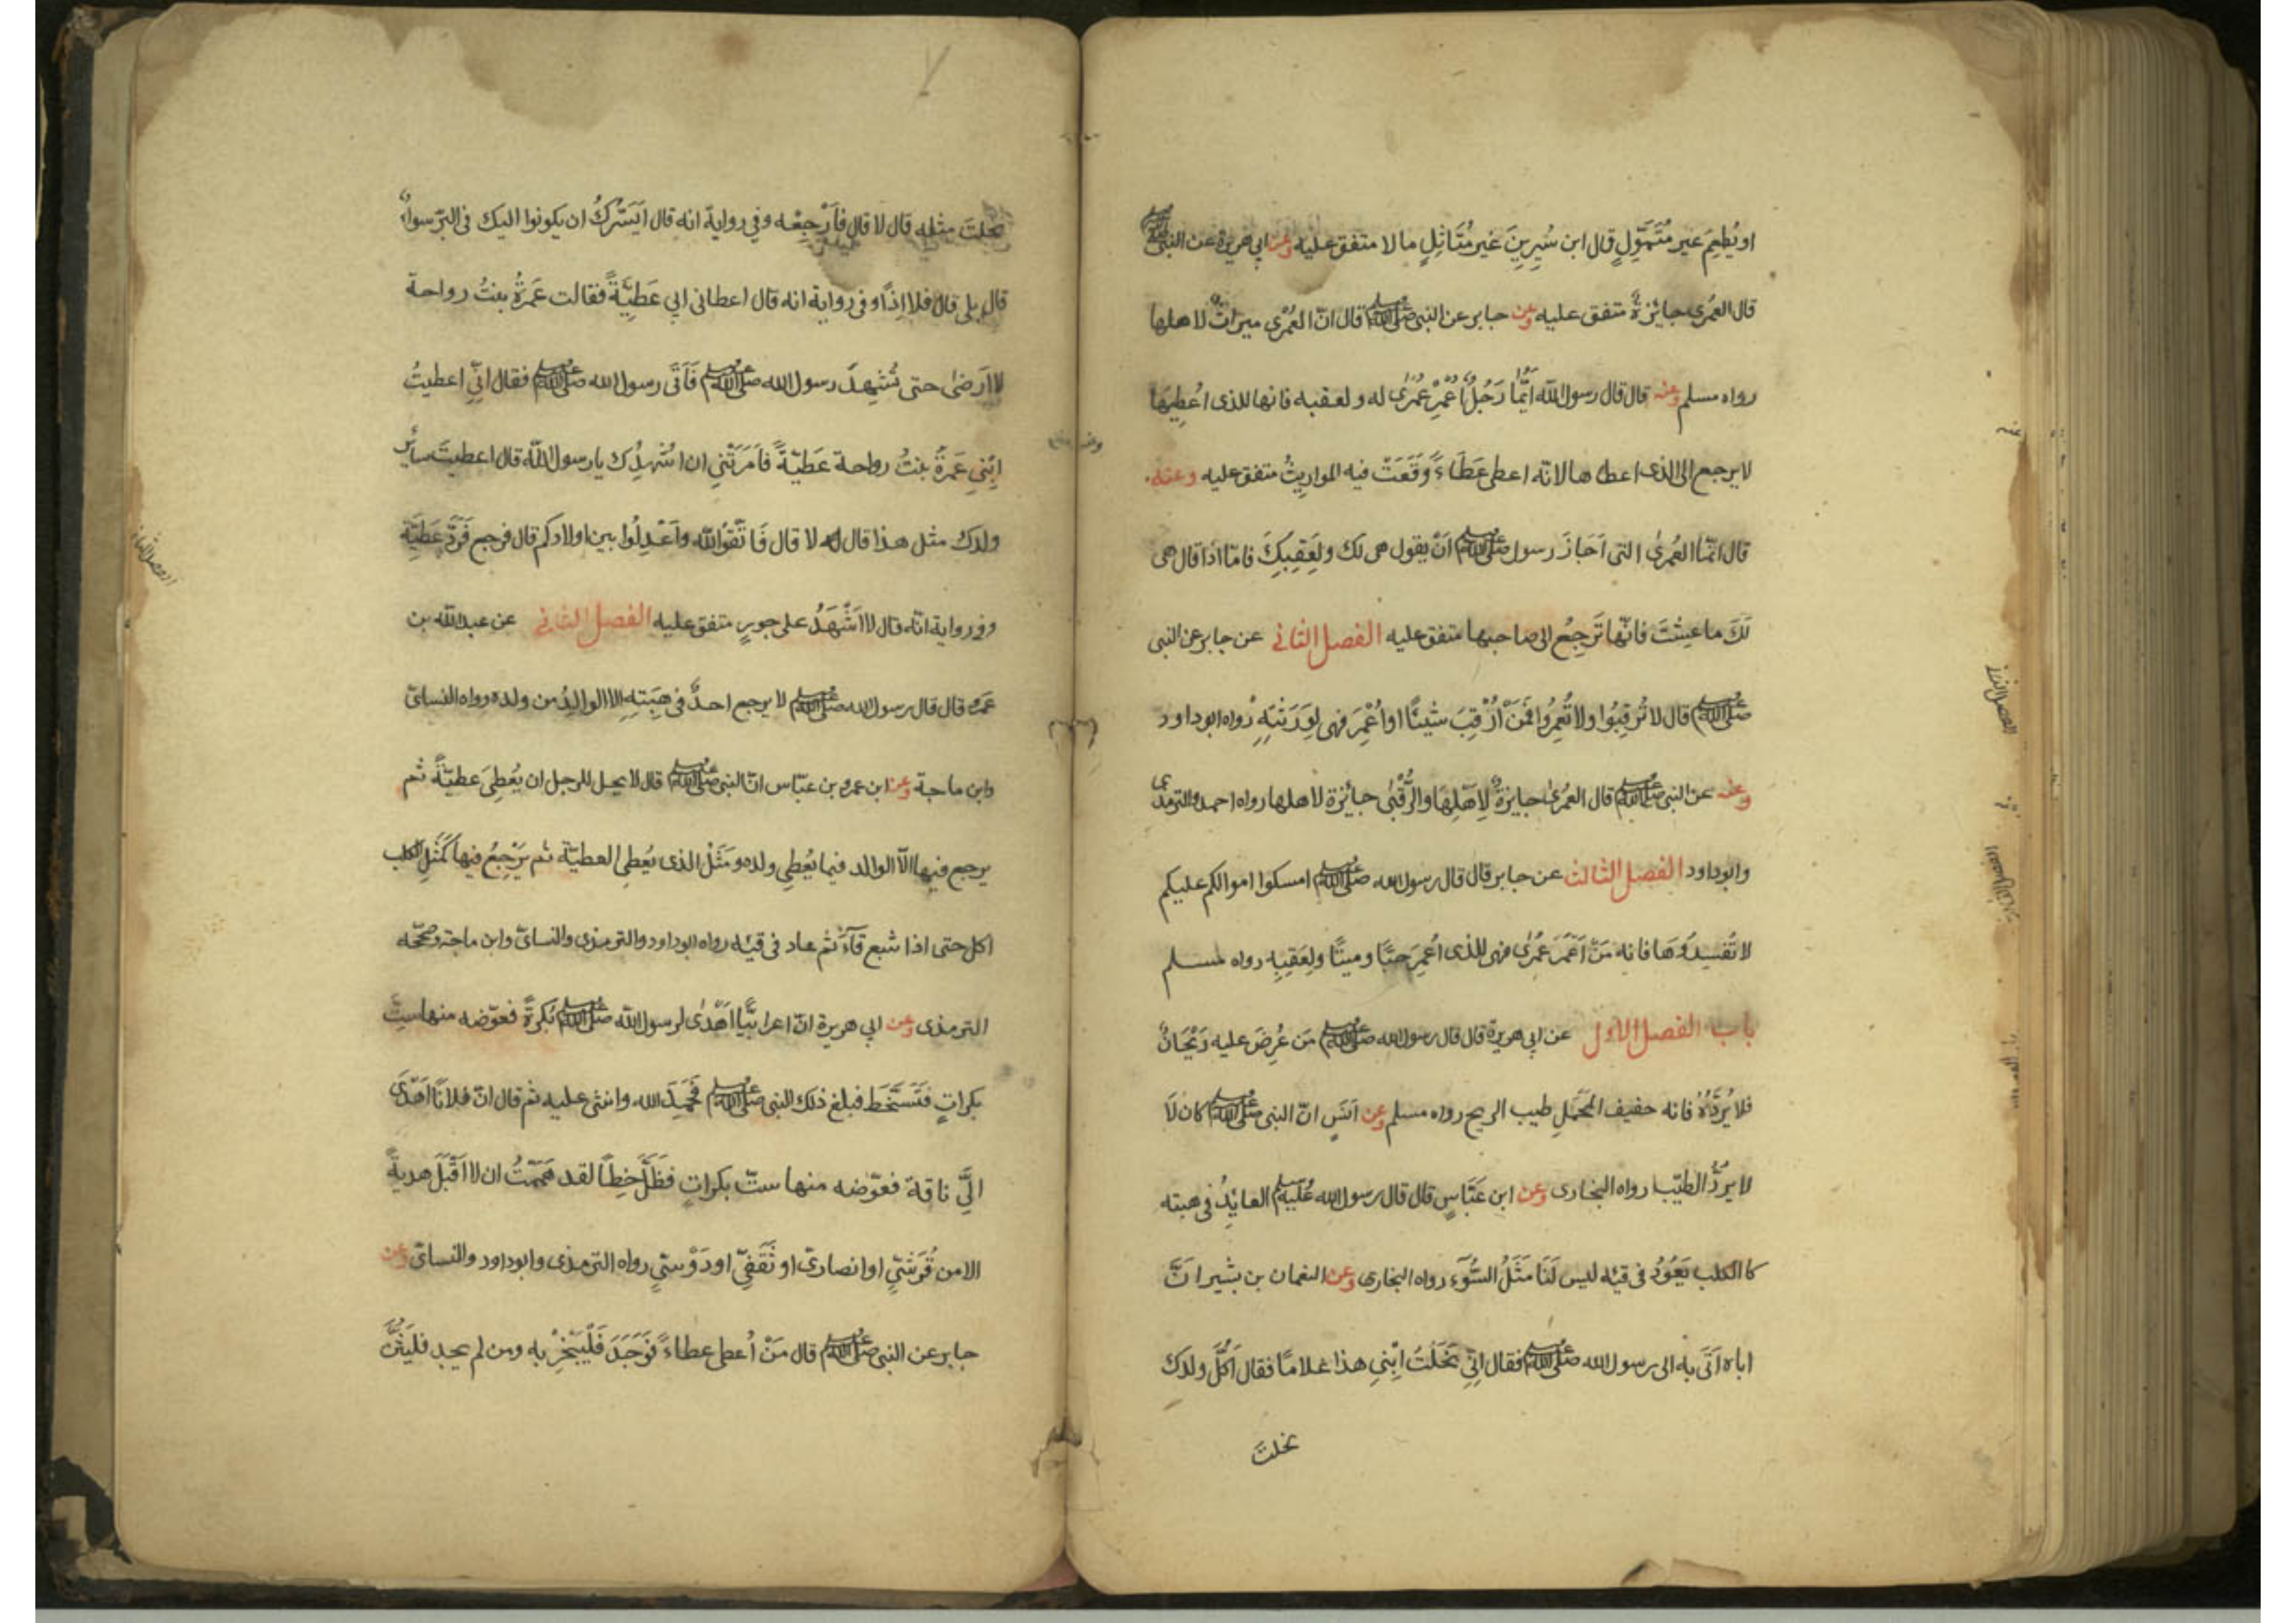 او يُطعِمَ غير مُتَمَوِّلٍ قال ابن سِيرينَ غير مُتَاثِلٍ مالا متفق عليه وعن ابي هريرة عن النبى ﷺ
قال العُمرى جايزةٌ متفق عليه وعن جابر عن النبى ﷺ قال انّ العُمْرٰى ميراثٌ لاهلها
رواه مسلم وعنه قال قال رسول الله اَيُّمَا رَجُلٍ اُعْمِرَ عُمْرٰى له ولعقبه فانها للذى اُعْطِيَهَا
لا يرجع الى الذى اعطاها لانّه اعطى عَطَاءً وَقَعَتْ فيه المواريثُ متفق عليه وعنه
قال انّما العُمرىٰ التى اَجَازَ رسول ﷺ اَنْ يقول هى لك ولِعَقِبِكَ فامّا اذا قال هى
لَكَ ما عِشْتَ فانّها تَرجِعُ الى صاحبها متفق عليه الفصل الثانى عن جابر عن النبى
ﷺ قال لا تُرقِبُوا ولا تُعمِرُوا فَمَنْ اُرْقِبَ شيئًا او اُعْمِرَ فهى لِوَرَثَتِهِ رواه ابوداود
وعنه عن النبى ﷺ قال العُمرٰى جايزةٌ لِاَهلِهَا والرُّقْبٰى جائزة لاهلها رواه احمد والترمذى
وابوداود الفصل الثالث عن جابر قال قال رسول الله ﷺ امسكوا اموالكم عليكم
لا تُفسِدُوهَا فانه مَنْ اَعْمَرَ عُمْرٰى فهى للذى اُعمِرَ حيًّا وميتًا ولِعَقِبِهِ رواه مسلم
باب الفصل الاول عن ابى هريرة قال قال رسول الله ﷺ مَن عُرِضَ عليه رَيْحَانٌ
فلا يُرَدُّهُ فانه خفيف المَحْمَلِ طيب الريح رواه مسلم وعن اَنَسٍ انّ النبى ﷺ كان لَا
لا يَرُدُّ الطيّب رواه البخارى وعن ابن عَبَّاسٍ قال قال رسول الله ﷺ العايِدُ فى هبته
كالكلب يَعُوْدُ فى قيئه ليس لَنَا مَثَلُ السُّوْءِ رواه البخارى وعن النعمان بن بشير انَّ
اباه اَتٰى به الى رسول الله ﷺ فقال اِنِّى نَحَلْتُ ابْنِى هذا غلامًا فقال اَكُلَّ ولدك
نحلتَ
نحلتَ مثله قال لا قال فاَرْجِعْه وفي رواية انه قال اَيَسُرُّكَ ان يكونوا اليك فى البِرّ سواءً
قال بلى قال فلا اِذًا وفى رواية انه قال اعطانى ابي عَطِيَّةً فقالت عَمرَةُ بنتُ رواحة
لا اَرضىٰ حتى تُشهِدَ رسول الله ﷺ فَاَتَى رسول الله ﷺ فقال انّى اعطيتُ
ابْنِى عَمرَةَ بنتُ رواحة عَطيّةً فاَمَرَتْنِى ان اُشْهِدَك يا رسول الله قال اعطيتَ ساير
ولدك مثل هذا قال له لا قال فَاتَّقُوا الله وَاَعْدِلُوا بين اولادكم قال فرجع فَرَدَّ عَطِيَّتَه
وفى رواية انّه قال لا اَشْهَدُ على جورٍ متفق عليه الفصل الثانى عن عبد الله بن
عَمرو قال قال رسول الله ﷺ لا يرجع احدٌ فى هِبَتِهِ الا الوالِدُ من ولده رواه النسائ
وابن ماجة وعن ابن عمر وبن عبّاس انّ النبى ﷺ قال لا يحل للرجل ان يُعطِىَ عطيّةً ثم
يرجع فيها الّا الوالد فيما يُعطِى ولده ومَثَلُ الذى يُعطِى العطيّة ثم يَرْجِعُ فيها كَمَثَلِ الكلب
اكل حتى اذا شبع قَآءَ ثم عاد فى قيئه رواه ابوداود والترمذى والنسائ وابن ماجة وصححّه
الترمذى وعن ابي هريرة انّ اعرابيًّا اَهْدىٰ لرسول الله ﷺ بَكرَةً فعوّضه منها سِتَّ
بكراتٍ فَتَسَخَّطَ فبلغ ذلك النبى ﷺ فَحَمِدَ الله واثنى عليه ثم قال انّ فلانًا اَهْدَى
اِلَىَّ ناقة فعوّضه منها ستّ بكراتٍ فظَلَّ سَخِطًا لقد هَمَمْتُ ان لا اَقْبَلَ هديةً
الا من قُرَشِىٍّ او انصارىّ او ثَقَفِىّ او دَوْسِىٍّ رواه الترمذى وابوداود والنسائ وعن
جابر عن النبى ﷺ قال مَنْ اُعطى عطاءً فَوَجَدَ فَلْيَجْزِ به ومن لم يجد فليُثْنِ